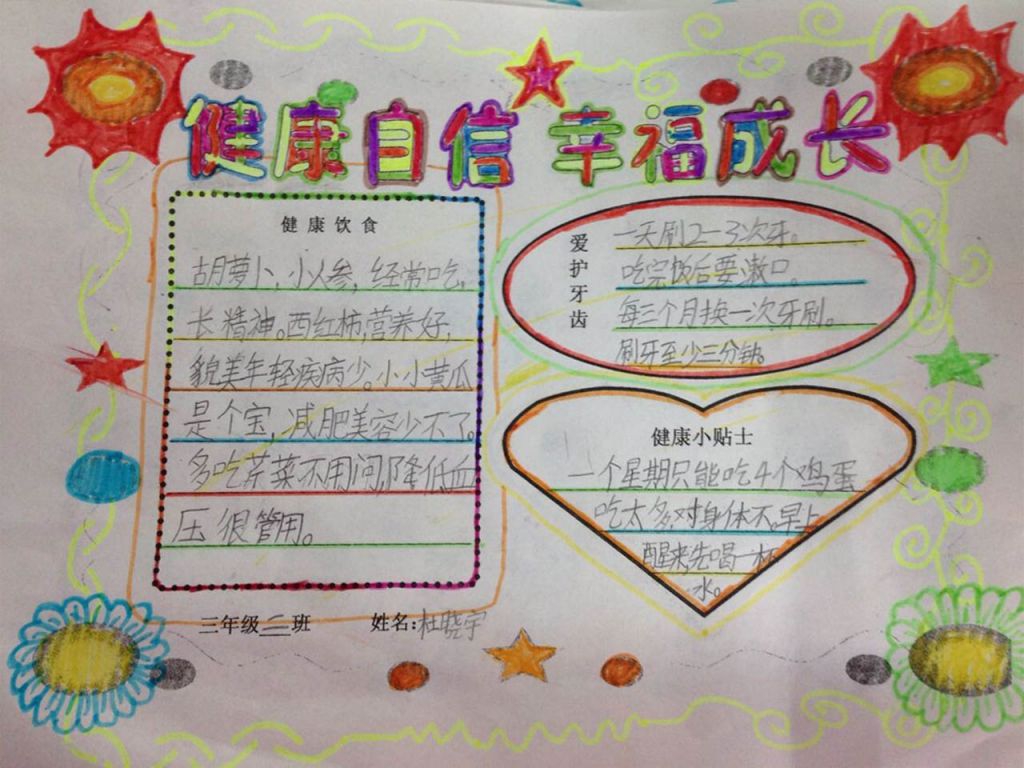 健康自信 幸福成长
健康饮食
胡萝卜,小人参,经常吃,
长精神。西红柿,营养好,
貌美年轻疾病少。小小黄瓜
是个宝,减肥美容少不了。
多吃芹菜不用问,降低血
压很管用。
爱护牙齿
一天刷2-3次牙。
吃完饭后要漱口。
每三个月换一次牙刷。
刷牙至少三分钟。
健康小贴士
一个星期只能吃4个鸡蛋
吃太多对身体不。早上
醒来,先喝一杯
水。
三年级三班 姓名:杜晓宇